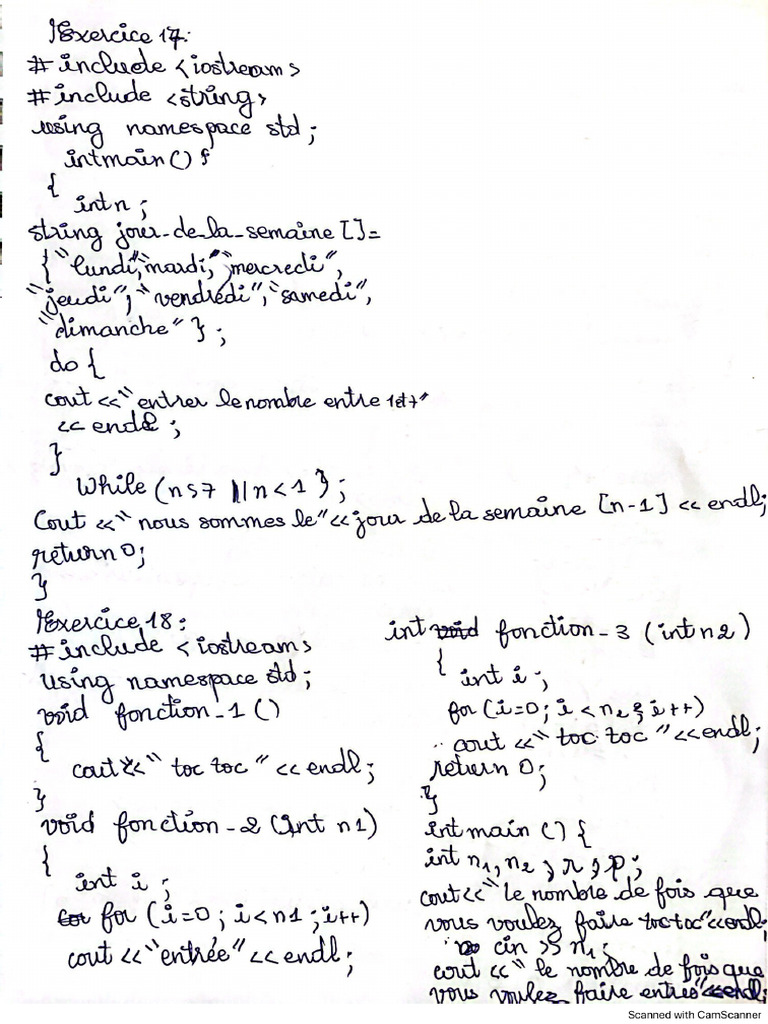 Exercice 17:
#include <iostream>
#include <string>
using namespace std;
int main() {
{
int n;
string jour_de_la_semaine[]=
{"lundi","mardi","mercredi",
"jeudi","vendredi","samedi",
"dimanche"};
do {
cout <<"entrer le nombre entre 1et7"
<< endl;
}
While (n>7 || n<1);
Cout <<"nous sommes le"<<jour de la semaine [n-1] << endl;
return 0;
}
Exercice 18:
#include <iostream>
using namespace std;
void fonction_1()
{
cout <<"toc toc"<< endl;
}
void fonction_2 (int n1)
{
int i;
for (i=0; i<n1; i++)
cout <<"entrée"<< endl;
int fonction_3 (int n2)
{
int i;
for (i=0; i<n2; i++)
cout <<"toc toc"<<endl;
return 0;
}
int main () {
int n1, n2, r, p;
cout<<"le nombre de fois que
vous voulez faire toctoc"<<endl;
cin >> n1;
cout <<"le nombre de fois que
vous voulez faire entrée"<<endl;
Scanned with CamScanner